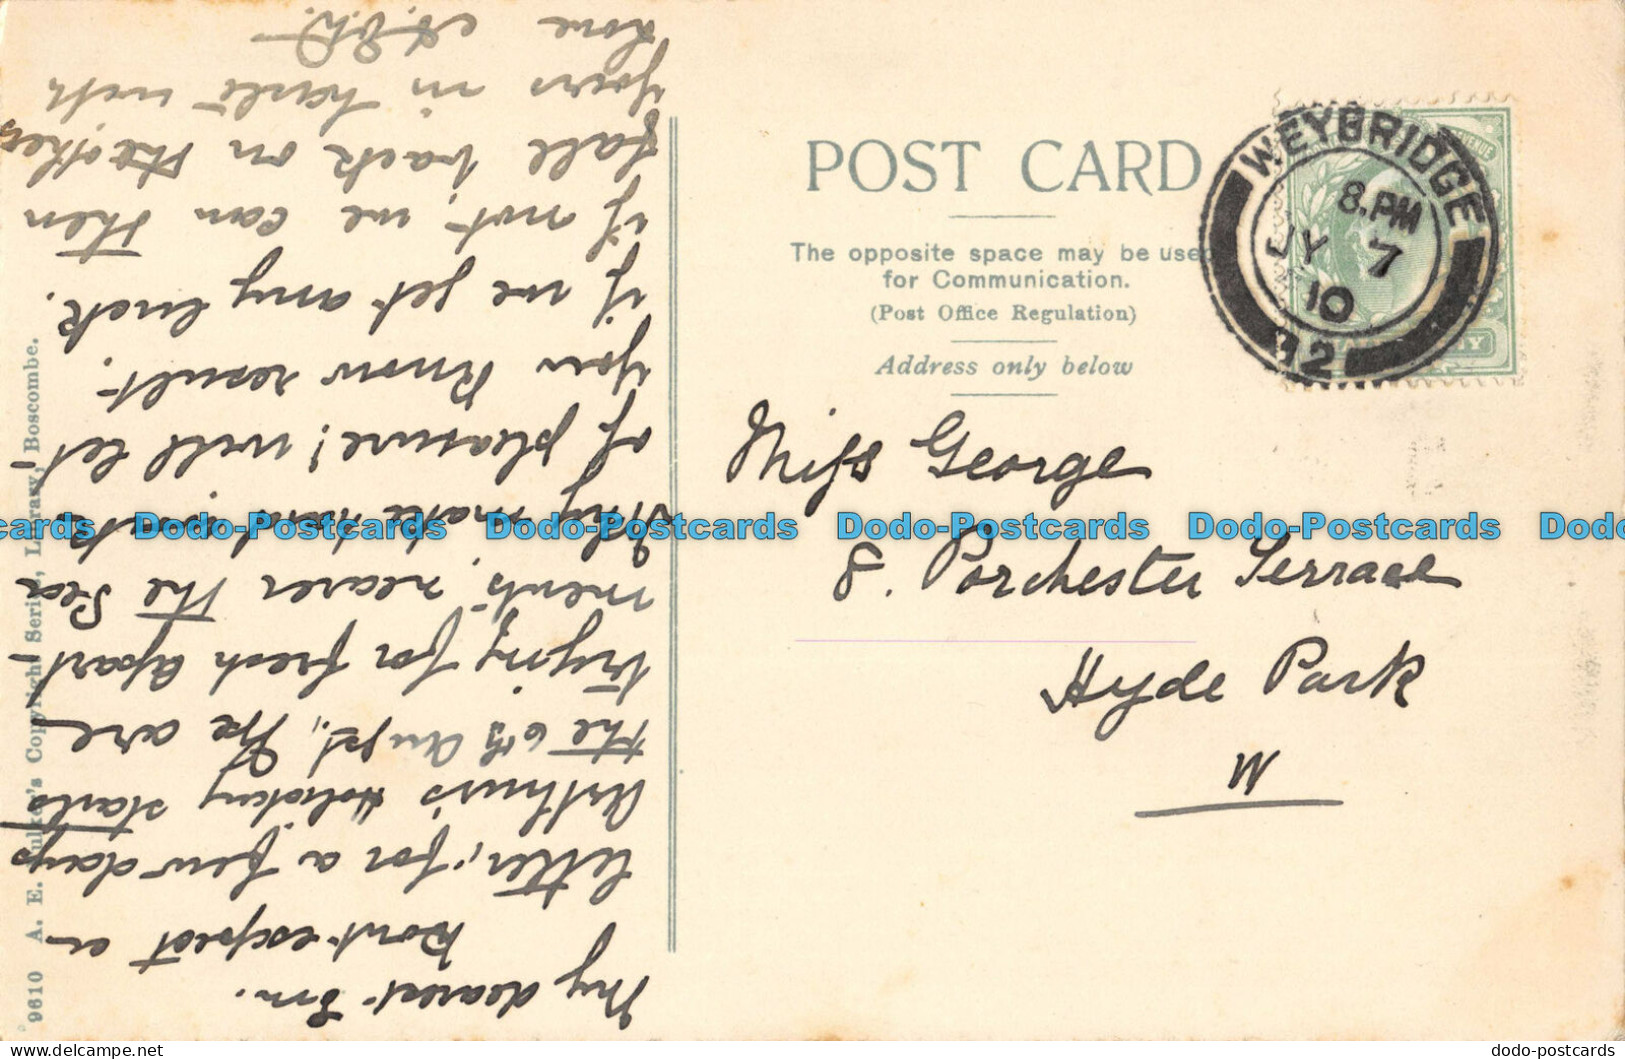 POST CARD
The opposite space may be used
for Communication.
(Post Office Regulation)
Address only below
WEYBRIDGE
8.PM
JY 7
10
12
Miss George
8. Porchester Terrace
Hyde Park
W
My dearest Em.
Dont expect a
letter, for a few days
Arthur's Holiday starts
the 6th Augst, We are
trying for fresh apart-
ments, nearer the Sea
They make hard work
of pleasure! will let
you know result.
if we get any luck.
if not, we can then
fall back on the others
yours in haste with
love
9610 A. E. 's Copyright Series, Library, Boscombe.
Dodo-Postcards Dodo-Postcards Dodo-Postcards Dodo-Postcards
dodo-postcards